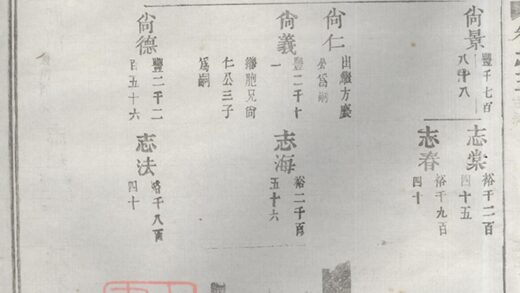 尙景
豐千七百
八十八
志棠
裕千二百
四十五
志春
裕千九百
四十
尙仁
出繼方慶
公爲嗣
尙義
豐二千十
一
繼胞兄尙
仁公三子
爲嗣
志海
裕二千百
五十六
尙德
豐二千二
百五十六
志法
裕千八百
四十